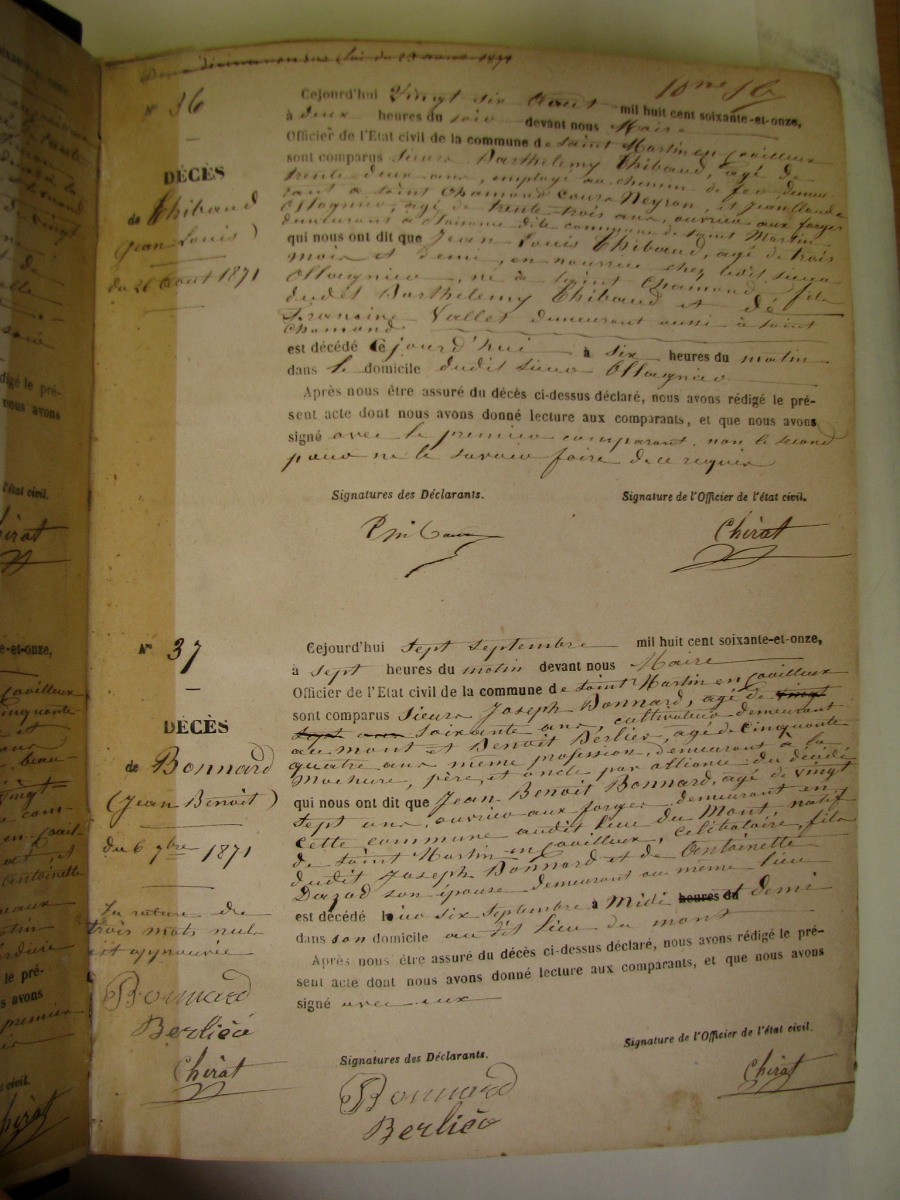 10me 16
N° 36
DÉCÈS
de Thibaud
(Jean Louis)
du 26 Aout 1871
Cejourd'hui Vingt six Aout mil huit cent soixante-et-onze,
à deux heures du soir devant nous Maire
Officier de l'Etat civil de la commune de Saint Martin en Coailleux
sont comparus Sieurs Barthélemy Thibaud, agé de
trente deux ans, employé au chemin de fer demeu
rant à Saint Chamond cours Neyron, et Jean Claude
Ollagnier, agé de trente-trois ans, ouvrier aux forges
demeurant à dite commune de Saint Martin
qui nous ont dit que Jean Louis Thibaud, agé de trois
mois et demi, en nourrice chez ledit sieur
Ollagnier, né à Saint Chamond, fils
dudit Barthélemy Thibaud et de
Francine Vallet demeurant aussi à Saint
Chamond
est décédé Cejourd'hui à six heures du matin
dans le domicile dudit sieur Ollagnier
Après nous être assuré du décès ci-dessus déclaré, nous avons rédigé le pré-
sent acte dont nous avons donné lecture aux comparants, et que nous avons
signé avec le premier comparant, non le second
pour ne le savoir faire de ce requis
Signatures des Déclarants.
Signature de l'Officier de l'état civil.
Chirat
N° 37
DÉCÈS
de Bonnard
(Jean Benoît)
Du 6 7bre 1871
La rature de
trois mots nuls
est approuvée
Bonnard
Berlier
Chirat
Cejourd'hui sept septembre mil huit cent soixante-et-onze,
à sept heures du matin devant nous Maire
Officier de l'Etat civil de la commune de Saint Martin en Coailleux
sont comparus Sieurs Joseph Bonnard, agé de vingt
sept ans soixante ans, cultivateur demeurant
au mont et Benoît Berlier, agé de cinquante
quatre ans même profession, demeurant à la
Mochure, père et oncle par alliance du décédé
qui nous ont dit que Jean Benoît Bonnard, agé de vingt
sept ans, ouvrier aux forges demeurant en
cette commune audit lieu du Mont, natif
de Saint Martin en Coailleux, célibataire, fils
dudit Joseph Bonnard et de Antoinette
Dazod son épouse demeurant au même lieu
est décédé hier six septembre à Midi heures du demi
dans son domicile audit lieu du mont
Après nous être assuré du décès ci-dessus déclaré, nous avons rédigé le pré-
sent acte dont nous avons donné lecture aux comparants, et que nous avons
signé avec eux
Signatures des Déclarants.
Signature de l'Officier de l'état civil.
Bonnard
Berlier
Chirat